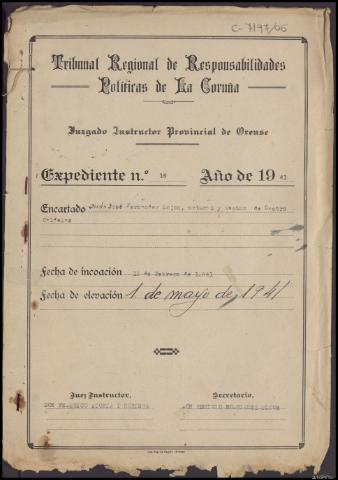 C-7197/06
Tribunal Regional de Responsabilidades
Políticas de La Coruña
Juzgado Instructor Provincial de Orense
Expediente n.º 16 Año de 1941
Encartado José Fernandez natural y vecino de Castro
Caldelas
Fecha de incoación 12 de Febrero de 1.941
Fecha de elevación 1 de mayo de 1941
Juez Instructor, Secretario,
DON
DON